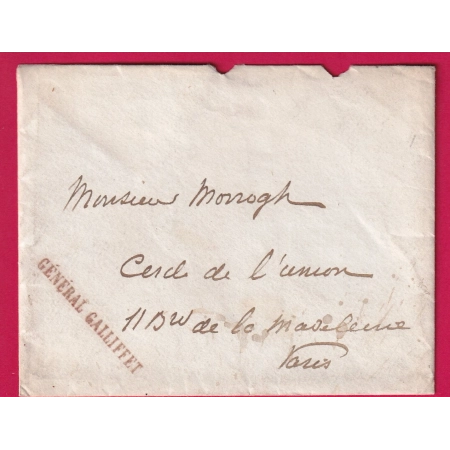 Monsieur Morrogh
Cercle de l'union
11 Bd de la Madeleine
Paris
GÉNÉRAL GALLIFFET